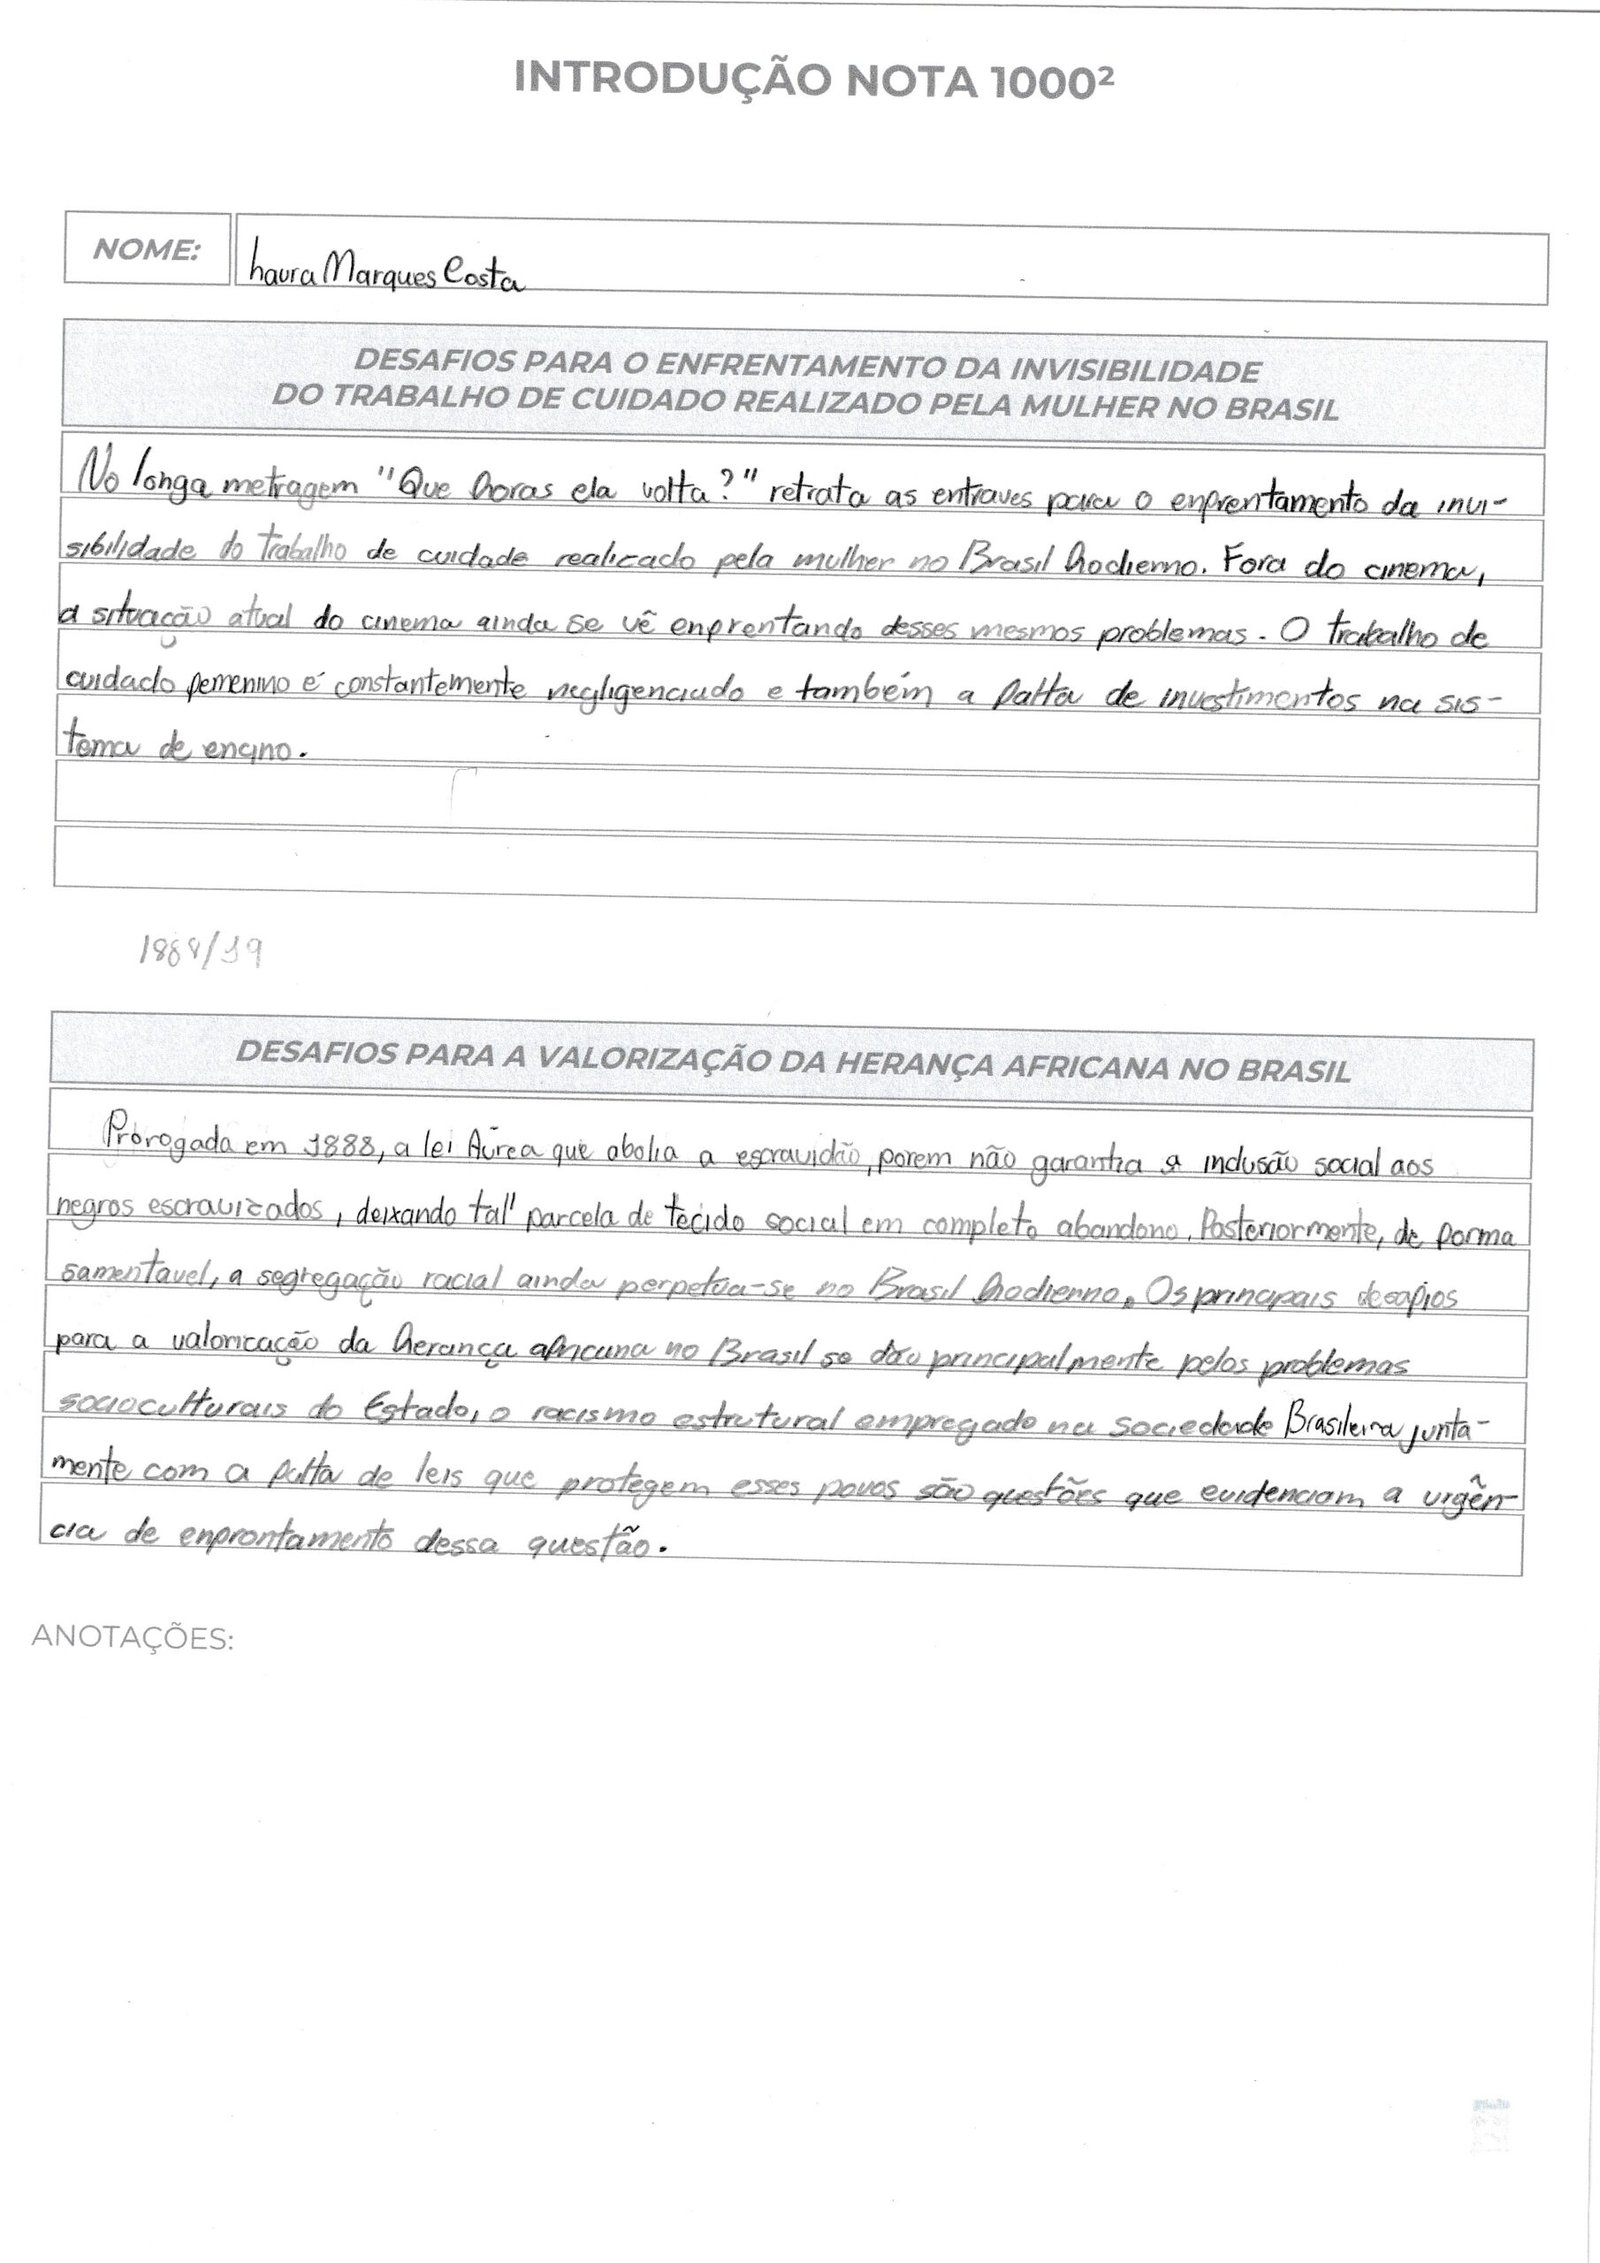 INTRODUÇÃO NOTA 1000²
NOME: Laura Marques Costa
DESAFIOS PARA O ENFRENTAMENTO DA INVISIBILIDADE
DO TRABALHO DE CUIDADO REALIZADO PELA MULHER NO BRASIL
No longa metragem "Que horas ela volta?" retrata as entraves para o enfrentamento da invi-
sibilidade do trabalho de cuidade realizado pela mulher no Brasil hodierno. Fora do cinema,
a situação atual do cinema ainda se vê enfrentando desses mesmos problemas. O trabalho de
cuidado femenino é constantemente negligenciado e também a falta de investimentos na sis-
tema de encino.
1888/19
DESAFIOS PARA A VALORIZAÇÃO DA HERANÇA AFRICANA NO BRASIL
Prorogada em 1888, a lei Áurea que abolia a escravidão, porem não garantia a inclusão social aos
negros escravizados, deixando tal parcela de tecido social em completo abandono. Posteriormente, de forma
lamentavel, a segregação racial ainda perpetua-se no Brasil hodienno. Os principais desafios
para a valorização da herança africana no Brasil se dão principalmente pelos problemas
socioculturais do Estado, o racismo estrutural empregado na sociedade Brasileira junta-
mente com a falta de leis que protegem esses povos são questões que evidenciam a urgên-
cia de enfrontamento dessa questão.
ANOTAÇÕES: